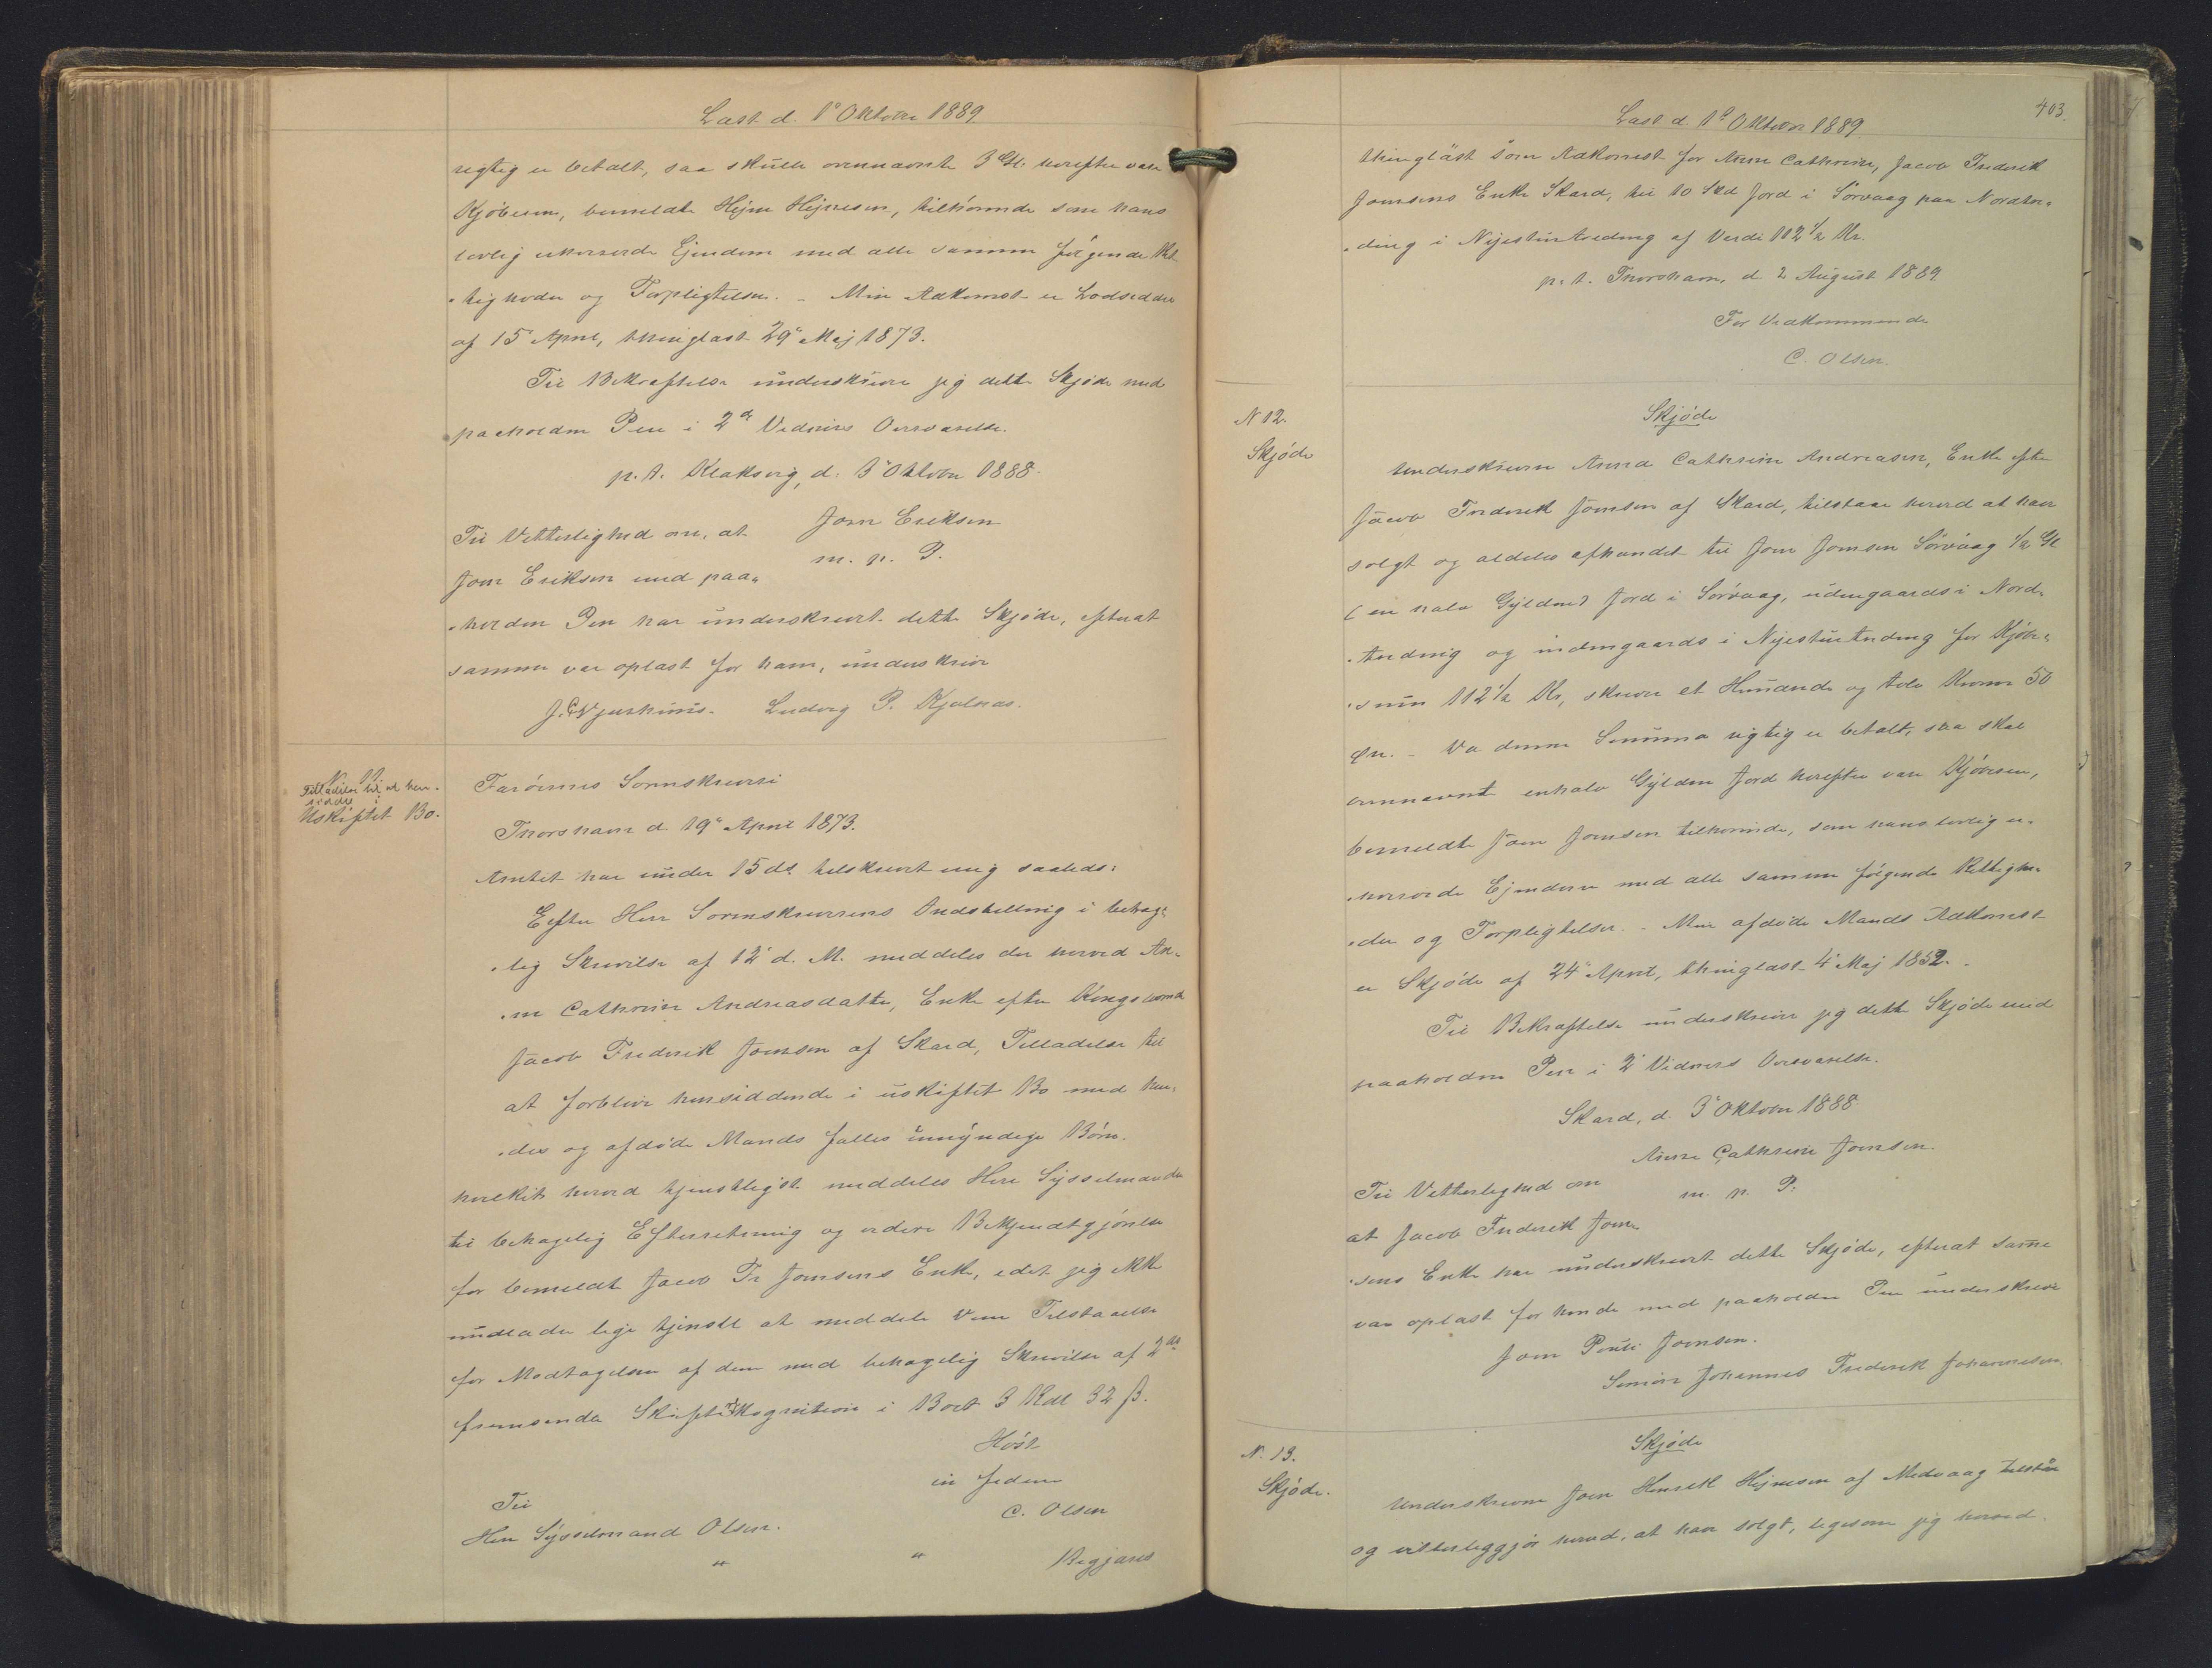 Læst d. 1ᵒ Oktober 1889
rigtig er betalt, saa skulle ovennævnte 3 Gl. herefter være
Kjøberen, bemeldte Hejne Hejnesen, tilhørende som hans
lovlig erhvervede Ejendom med alle samme følgende Ret-
tigheder og Forpligtelser. - Min Adkomst er Lodseddel
af 15 April, thinglæst 29 Maj 1873.
Til Bekræftelse underskriver jeg dette Skjøde med
paaholden Pen i 2de Vidners Overværelse.
p. t. Klaksvig, d. 3 Oktober 1888
Joen Eriksen
Til Vitterlighed om, at
m. p. P.
Joen Eriksen med paa-
holden Pen har underskrevet dette Skjøde, efterat
samme var oplæst for ham, underskriver
Ludvig P. Kjølnæs.
N. 11
Tilladelse til at hen-
sidde i
Uskiftet Bo.
Færøernes Sorenskriveri
Thorshavn d. 19 April 1873.
Amtet har under 15 ds tilskrevet mig saaledes:
Efter Herr Sorenskriverens Indstilling i behage-
lig Skrivelse af 12 d. M. meddeles der herved An-
ne Cathrine Andreasdatter, Enke efter Kongsbonde
Jacob Frederik Joensen af Skard, Tilladelse til
at forblive hensiddende i uskiftet Bo med hen-
des og afdøde Mands fælles umyndige Børn.
hvilket herved tjenstligst meddeles Herr Sysselmanden
til behagelig Efterretning og videre Bekjendtgjørelse
for bemeldte Jacob Fr Joensens Enke, idet jeg ikke
undlader lige tjenstl at meddele Dem Tilstaaelse
for Modtagelsen af den med behagelig Skrivelse af 2 ds
fremsendte Skifterekognition i Boet 3 Rdl 32 ß.
Høst
in fidem
Til
C. Olsen
Herr Sysselmand Olsen.
" "
Biggjares
403.
Læst d. 1ᵒ Oktober 1889
thinglæst som Adkomst for Anne Cathrine, Jacob Frederik
Joensens Enke Skard, til 10 Skd Jord i Sørvaag paa Nordtre-
ding i Nijestuetreding af Værdi 112 1/2 Kr.
p. t. Thorshavn, d. 2 August 1889
For Vedkommende
C. Olsen.
N 12.
Skjøde
Skjøde
Underskrevne Anna Cathrine Andreasen, Enke efter
Jacob Frederik Joensen af Skard, tilstaar herved at have
solgt og aldeles afhændet til Joen Joensen Sørvaag 1/2 Gl
(en halv Gylden) Jord i Sørvaag, udengaards i Nord-
treding og indengaards i Nijestuetreding for Kjøbe-
sum 112 1/2 Kr, skriver et Hundrede og tolv Kroner 50
Øre. - Da denne Summa rigtig er betalt, saa skal
ovennævnt enhalv Gylden Jord herefter være Kjøberen,
bemeldte Joen Joensen tilhørende, som hans lovlig er-
hvervede Ejendom med alle samme følgende Rettighe-
der og Forpligtelser. - Min afdøde Mands Adkomst
er Skjøde af 24 April, thinglæst 4 Maj 1852.
Til Bekræftelse underskriver jeg dette Skjøde med
paaholden Pen i 2 Vidners Overværelse.
Skard, d. 3 Oktober 1888
Anne Cathrine Joensen.
Til Vitterlighed om
m. p. P.
at Jacob Frederik Joen-
sens Enke har underskrevet dette Skjøde, efterat same
var oplæst for hende med paaholden Pen underskrive
Joen Poul Joensen.
Simon Johannes Frederik Johannesen.
N. 13.
Skjøde.
Skjøde
Underskrevne Joen Henrik Hejnesen af Midvaag tilstår
og vitterliggjør herved, at have solgt, ligesom jeg herved